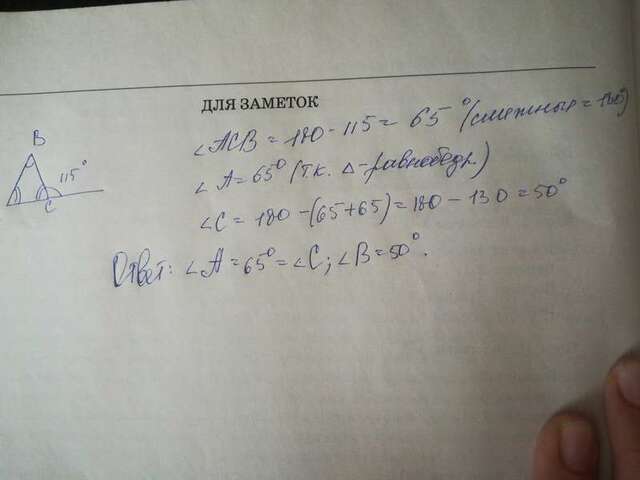 ДЛЯ ЗАМЕТОК
B
115°
C
∠ACB = 180 - 115 = 65° (смежные = 180°)
∠A = 65° (т.к. △-равнобедр.)
∠C = 180 - (65+65) = 180 - 130 = 50°
Ответ: ∠A = 65° = ∠C; ∠B = 50°.